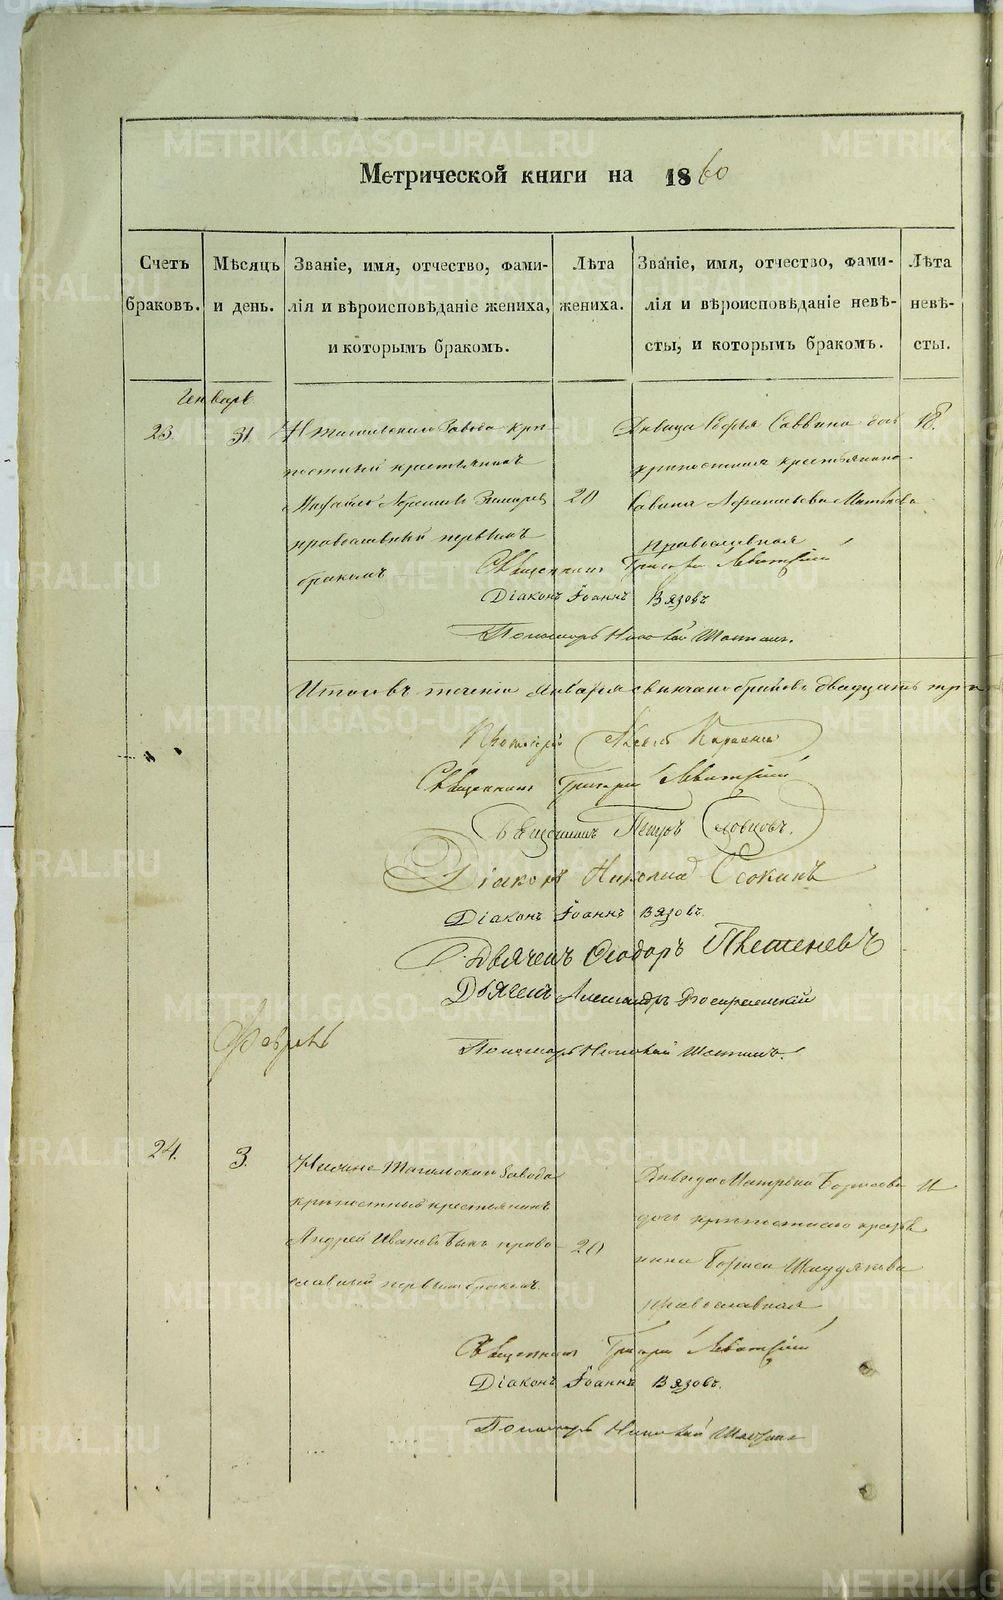 METRIKI.GASO-URAL.RU
Метрической книги на 1860
Счетъ браковъ.
Мѣсяцъ и день.
Званіе, имя, отчество, фами-
лія и вѣроисповѣданіе жениха,
и которымъ бракомъ.
Лѣта жениха.
Званіе, имя, отчество, фами-
лія и вѣроисповѣданіе невѣ-
сты, и которымъ бракомъ.
Лѣта невѣ-
сты.
Генварь
23.
31.
Н Тагильскаго Завода крѣ-
постный крестьянинъ
православный первымъ
бракомъ
20
Дѣвица Софья Саввина дочь
крѣпостнаго крестьянина
Саввина
православная
18.
Священникъ Григорій Левитскій
Діаконъ Іоаннъ Вязовъ
Пономарь Николай
Итого въ теченіи Января свѣнчано браковъ двадцать три
Протоіерей
Священникъ Григорій Левитскій
Священникъ Петръ Словцовъ.
Діаконъ Николай Осокинъ
Діаконъ Іоаннъ Вязовъ.
Дьячекъ Ѳеодоръ
Дьячекъ Александръ Воскресенскій
Пономарь Николай
Февраль
24.
3.
Нижне Тагильскаго Завода
крѣпостный крестьянинъ
Андрей Ивановъ Быкъ право-
славный первымъ бракомъ.
20
Дѣвица Матрона Борисова
дочь крѣпостнаго крестья
нина Бориса
православная
Священникъ Григорій Левитскій
Діаконъ Іоаннъ Вязовъ.
Пономарь Николай